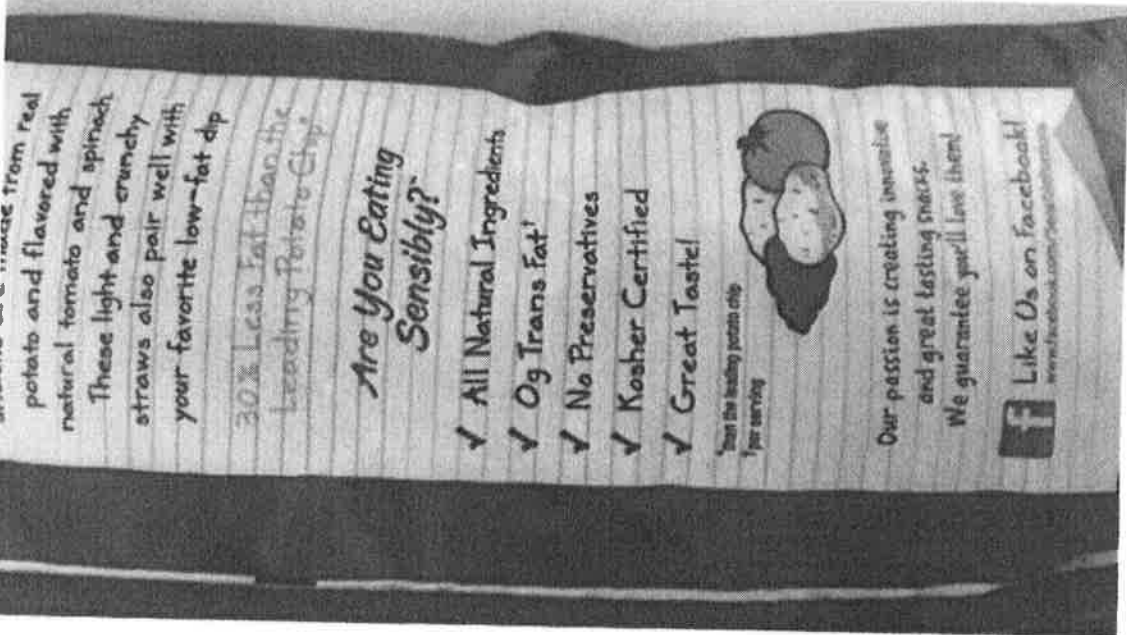 made from real
potato and flavored with
natural tomato and spinach.
These light and crunchy
straws also pair well with
your favorite low-fat dip
30% Less Fat than the
Leading Potato Chip*
Are You Eating
Sensibly?™
✓ All Natural Ingredients
✓ 0g Trans Fat†
✓ No Preservatives
✓ Kosher Certified
✓ Great Taste!
*than the leading potato chip
†per serving
Our passion is creating innovative
and great tasting snacks.
We guarantee you'll love them!
f Like Us on Facebook!